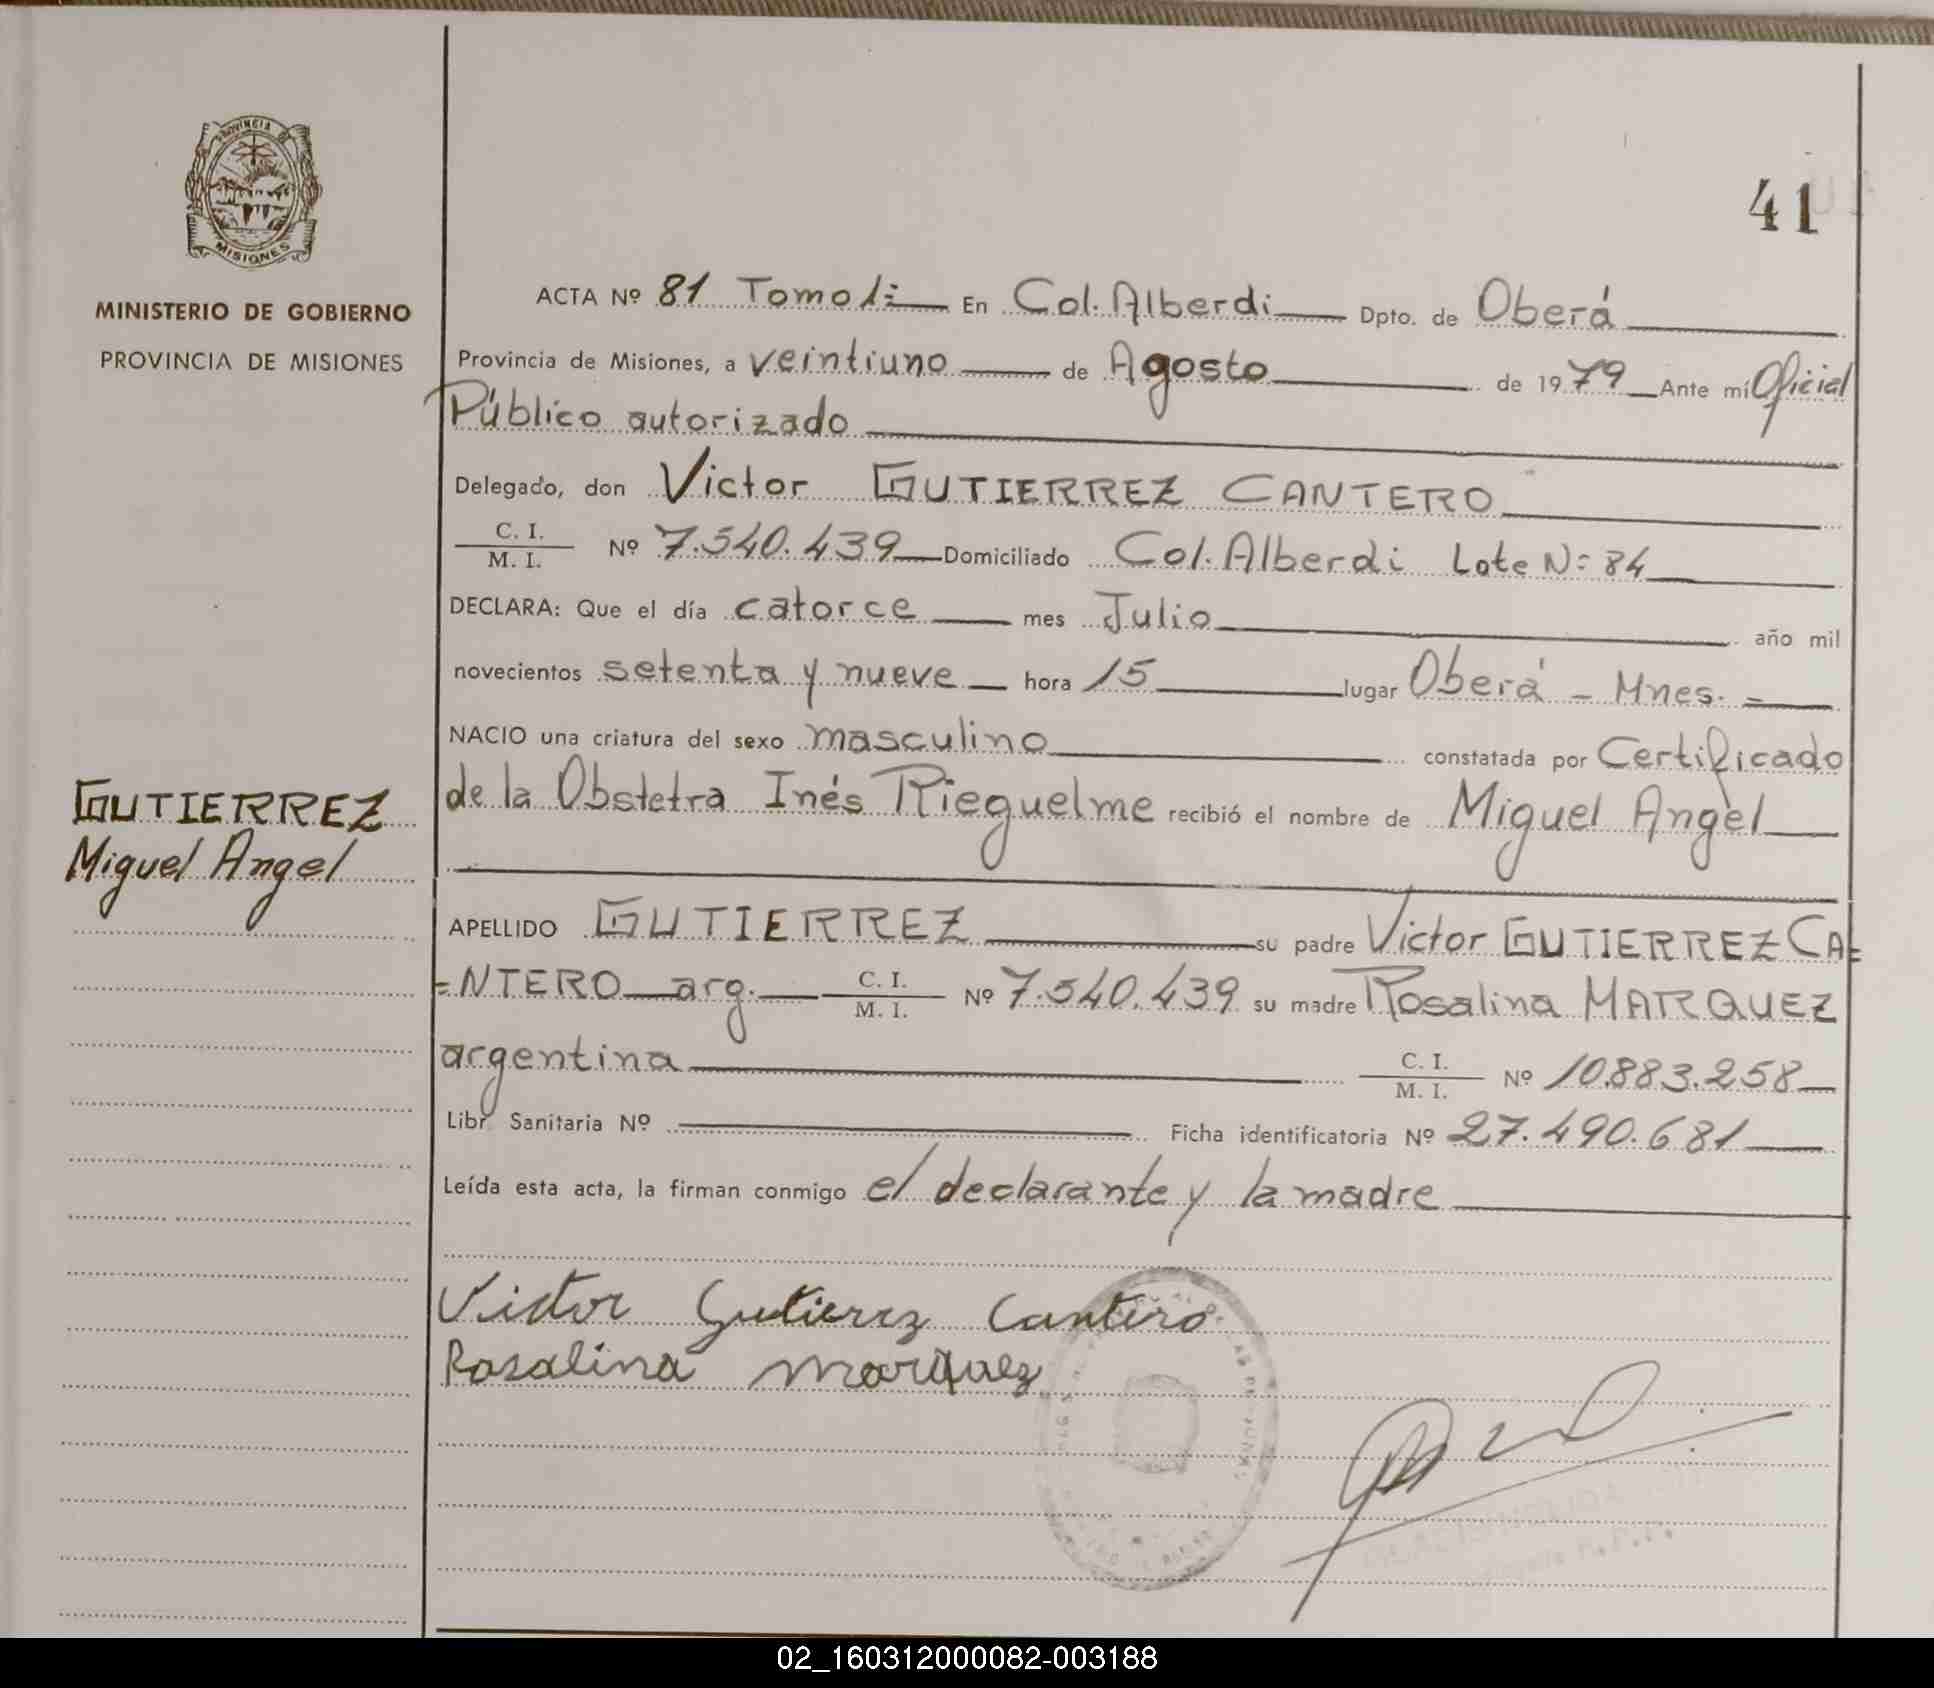 PROVINCIA DE
MISIONES
MINISTERIO DE GOBIERNO
PROVINCIA DE MISIONES
GUTIERREZ
Miguel Angel
41
ACTA Nº 81 Tomo 1: En Col. Alberdi Dpto. de Oberá
Provincia de Misiones, a veintiuno de Agosto de 1979 Ante mí Oficial
Público autorizado
Delegado, don Victor GUTIERREZ CANTERO
C. I.
M. I. Nº 7.540.439 Domiciliado Col. Alberdi Lote N: 84
DECLARA: Que el día catorce mes Julio año mil
novecientos setenta y nueve hora 15 lugar Oberá - Mnes. -
NACIO una criatura del sexo masculino constatada por Certificado
de la Obstetra Inés Rieguelme recibió el nombre de Miguel Angel
APELLIDO GUTIERREZ su padre Victor GUTIERREZ CA=
=NTERO arg. C. I. M. I. Nº 7.540.439 su madre Rosalina MARQUEZ
argentina C. I. M. I. Nº 10.883.258
Libr. Sanitaria Nº Ficha identificatoria Nº 27.490.681
Leída esta acta, la firman conmigo el declarante y la madre
Victor Gutierrez Cantero
Rosalina Marquez
02_160312000082-003188